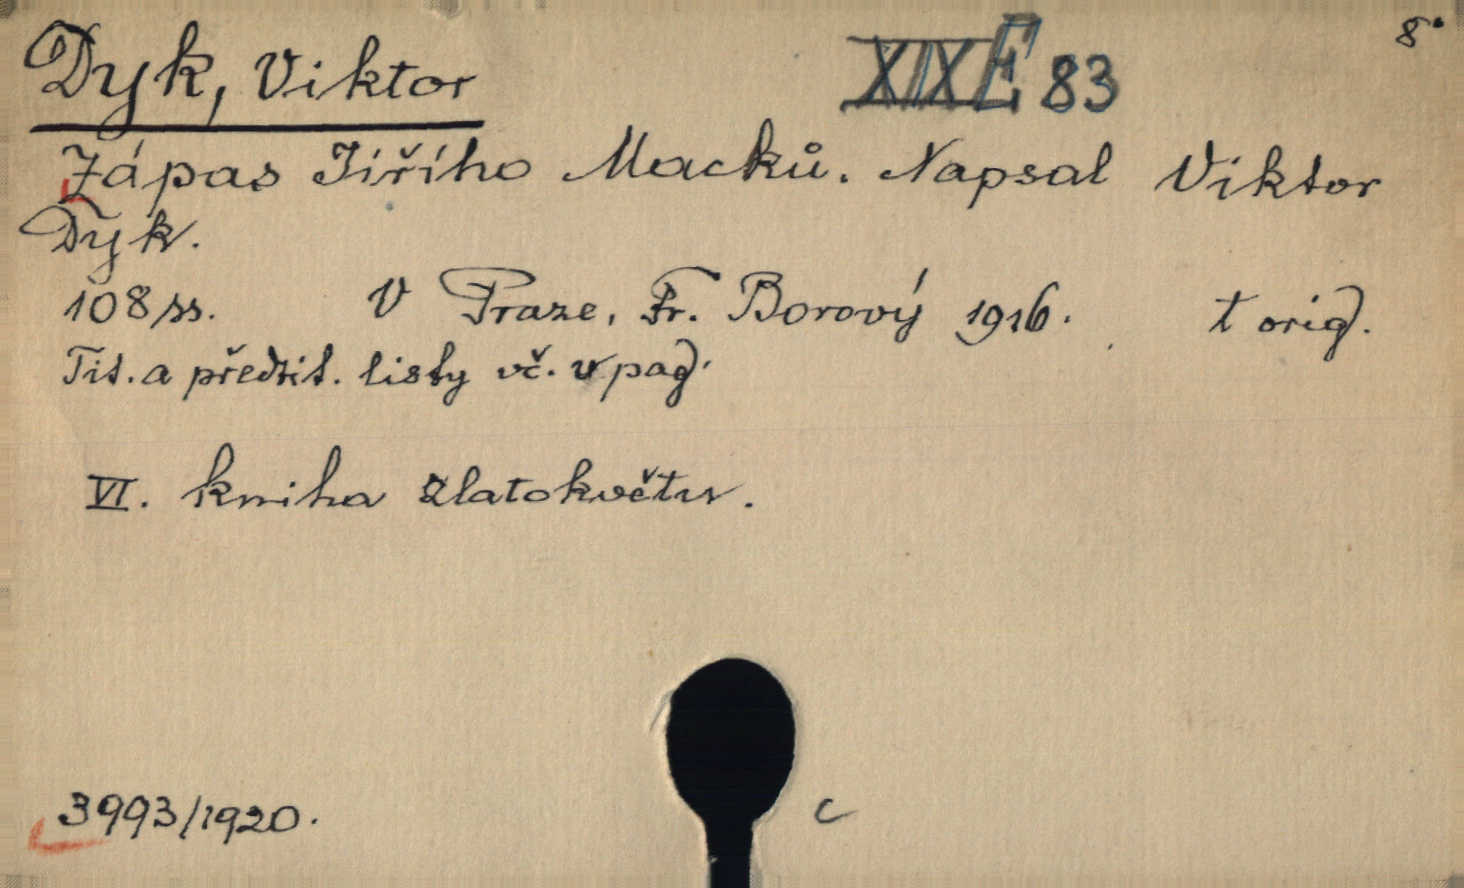 8°
Dyk, Viktor XIX E 83
Zápas Jiřího Macků. Napsal Viktor
Dyk.
108 ss. V Praze, Fr. Borový 1916. t orig.
Tit. a předtit. listy vč. v pag.
VI. kniha Zlatokvětu.
3993/1920. c